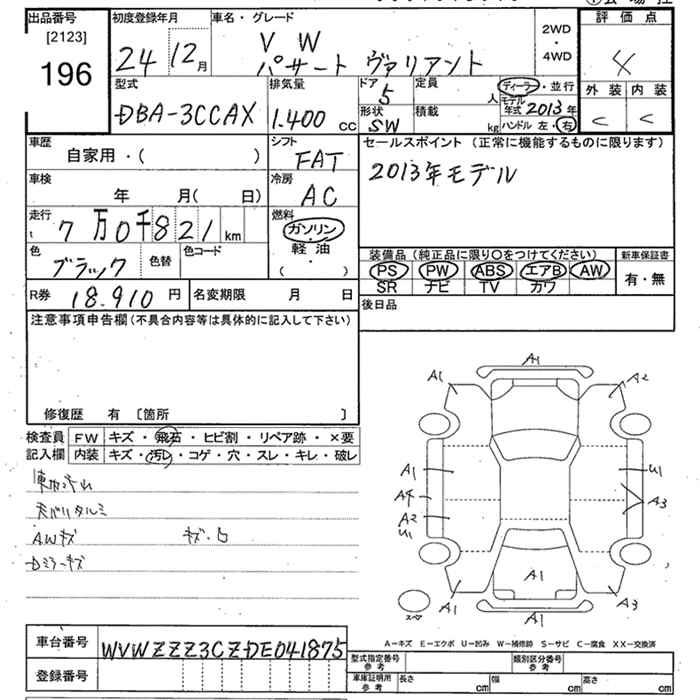 出品番号
[2123]
196
初度登録年月
24 12月
車名・グレード
VW
パサート ヴァリアント
2WD
・
4WD
評価点
4
外装 内装
C C
型式
DBA-3CCAX
排気量
1.400 cc
ドア
5
形状
SW
定員
人
積載
kg
ディーラー・並行
モデル年式 2013年
ハンドル 左・右
車歴
自家用・( )
シフト
FAT
車検
年 月( 日)
冷房
AC
走行
t 7万0千821 km
燃料
ガソリン
・
軽油
( )
色
ブラック
色替
色コード
R券 18.910円
名変期限 月 日
セールスポイント(正常に機能するものに限ります)
2013年モデル
装備品(純正品に限り〇をつけてください)
PS PW ABS エアB AW
SR ナビ TV カワ
新車保証書
有・無
後日品
注意事項申告欄(不具合内容等は具体的に記入して下さい)
修復歴 有 〔箇所 〕
検査員
記入欄
FW キズ・飛石・ヒビ割・リペア跡・×要
内装 キズ・汚レ・コゲ・穴・スレ・キレ・破レ
天バリタルミ
AWキズ
Dミラーキズ
A1
A1 A2
A1 U1
A4 A3
A2
U1
A1
A1 A3
A1
スペア
A-キズ E-エクボ U-凹み W-補修跡 S-サビ C-腐食 XX-交換済
車台番号 WVWZZZ3CZDE041875
登録番号
型式指定番号
参考
類別区分番号
参考
車庫証明用
参考
長さ cm 幅 cm 高さ cm